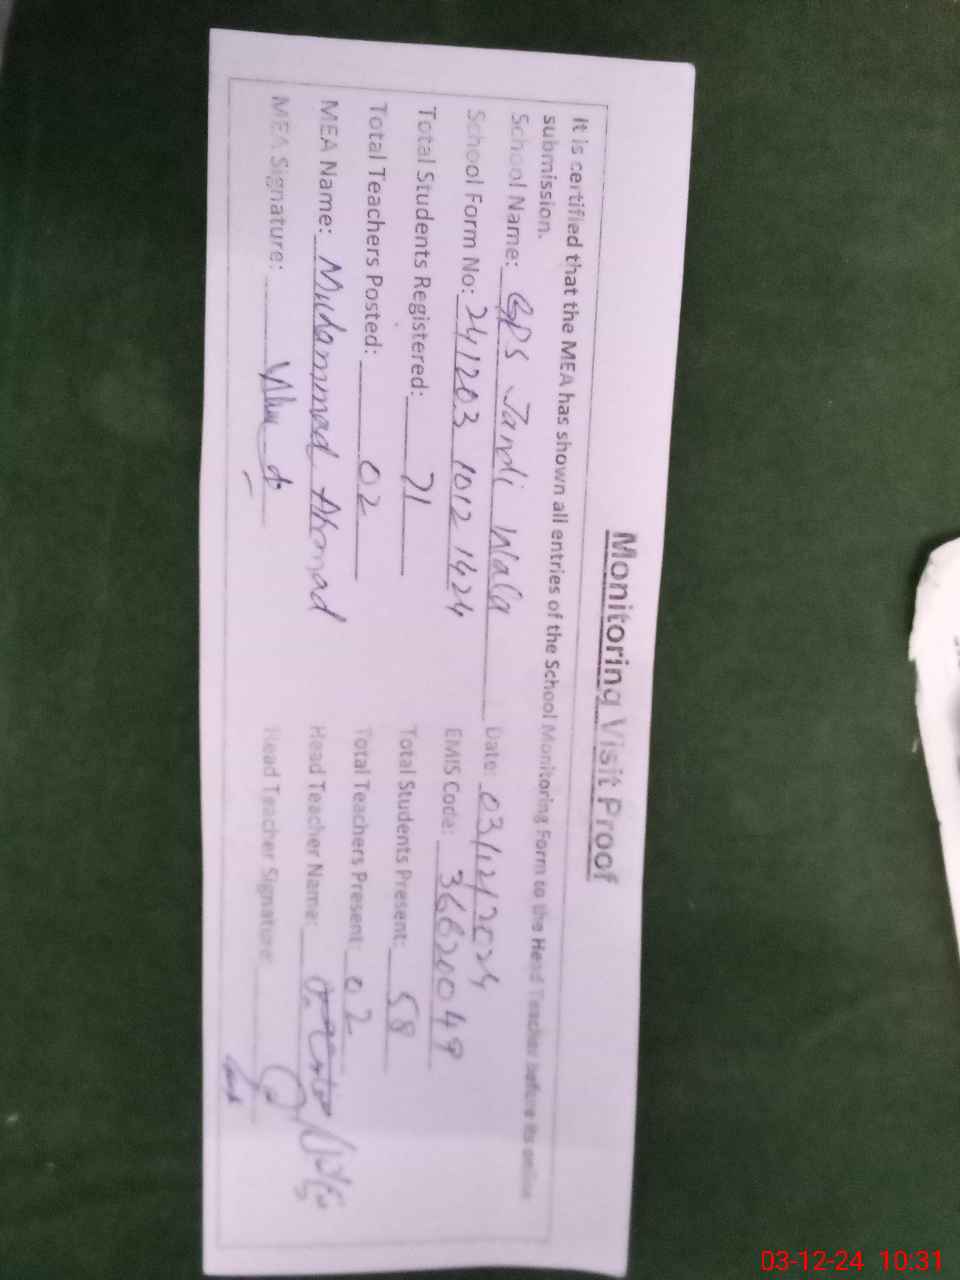 Monitoring Visit Proof
It is certified that the MEA has shown all entries of the School Monitoring Form to the Head Teacher before its online
submission.
School Name: GPS Jandi Wala Date: 03/12/2024
School Form No: 241203 1012 1424 EMIS Code: 36620049
Total Students Registered: 71 Total Students Present: 58
Total Teachers Posted: 02 Total Teachers Present: 02
MEA Name: Muhammad Ahmad Head Teacher Name:
MEA Signature: Head Teacher Signature:
03-12-24 10:31